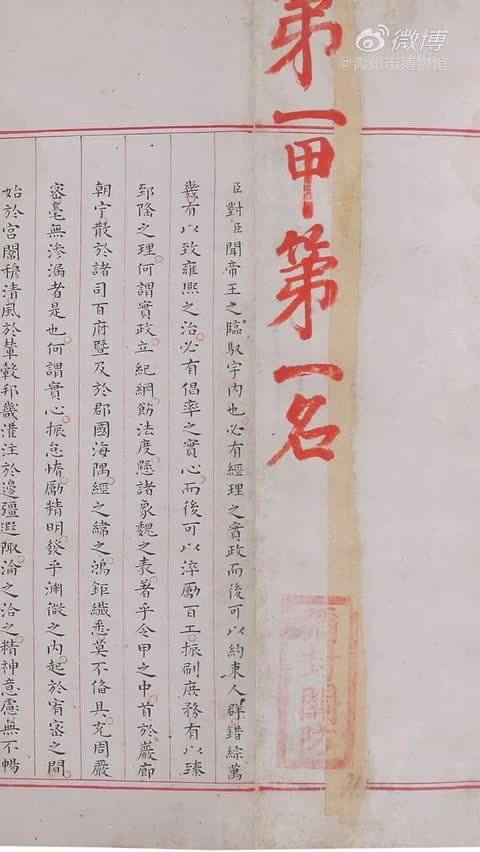 微博
@青州市博物馆
第一甲第一名
彌封關防
臣對臣聞帝王之臨馭宇內也必有經理之實政而後可以約束人群錯綜萬
幾有以致雍熙之治必有倡率之實心而後可以淬勵百工振刷庶務有以臻
郅隆之理何謂實政立紀綱飭法度懸諸象魏之表著乎令甲之中首於嚴廊
朝宁散於諸司百府暨及於郡國海隅經之緯之鴻鉅纖悉莫不備具充周嚴
密毫無滲漏者是也何謂實心振怠惰勵精明發乎淵微之內起於宥密之間
始於宮闈穆清風於輦轂邦畿灌注於邊疆遐陬淪之洽之精神意慮無不暢